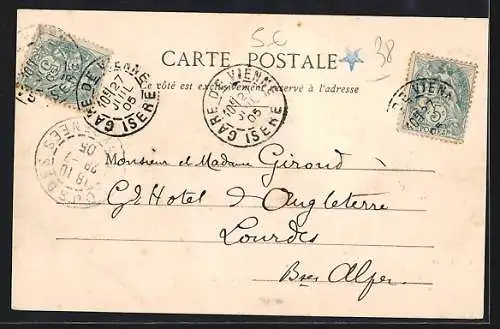 S.C
38
CARTE POSTALE
Ce côté est exclusivement réservé à l'adresse
GARE DE VIENNE
ISERE
27
JUIL
05
GARE DE VIENNE
ISERE
JUIL
05
Monsieur et Madame Giroud
Gd Hotel d'Angleterre
Lourdes
Bses Alpes